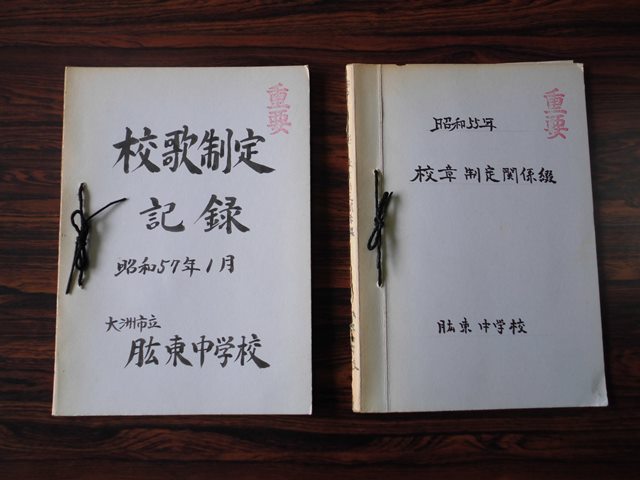 重要
校歌制定
記録
昭和57年1月
大洲市立
肱東中学校
重要
昭和55年
校章制定関係綴
肱東中学校